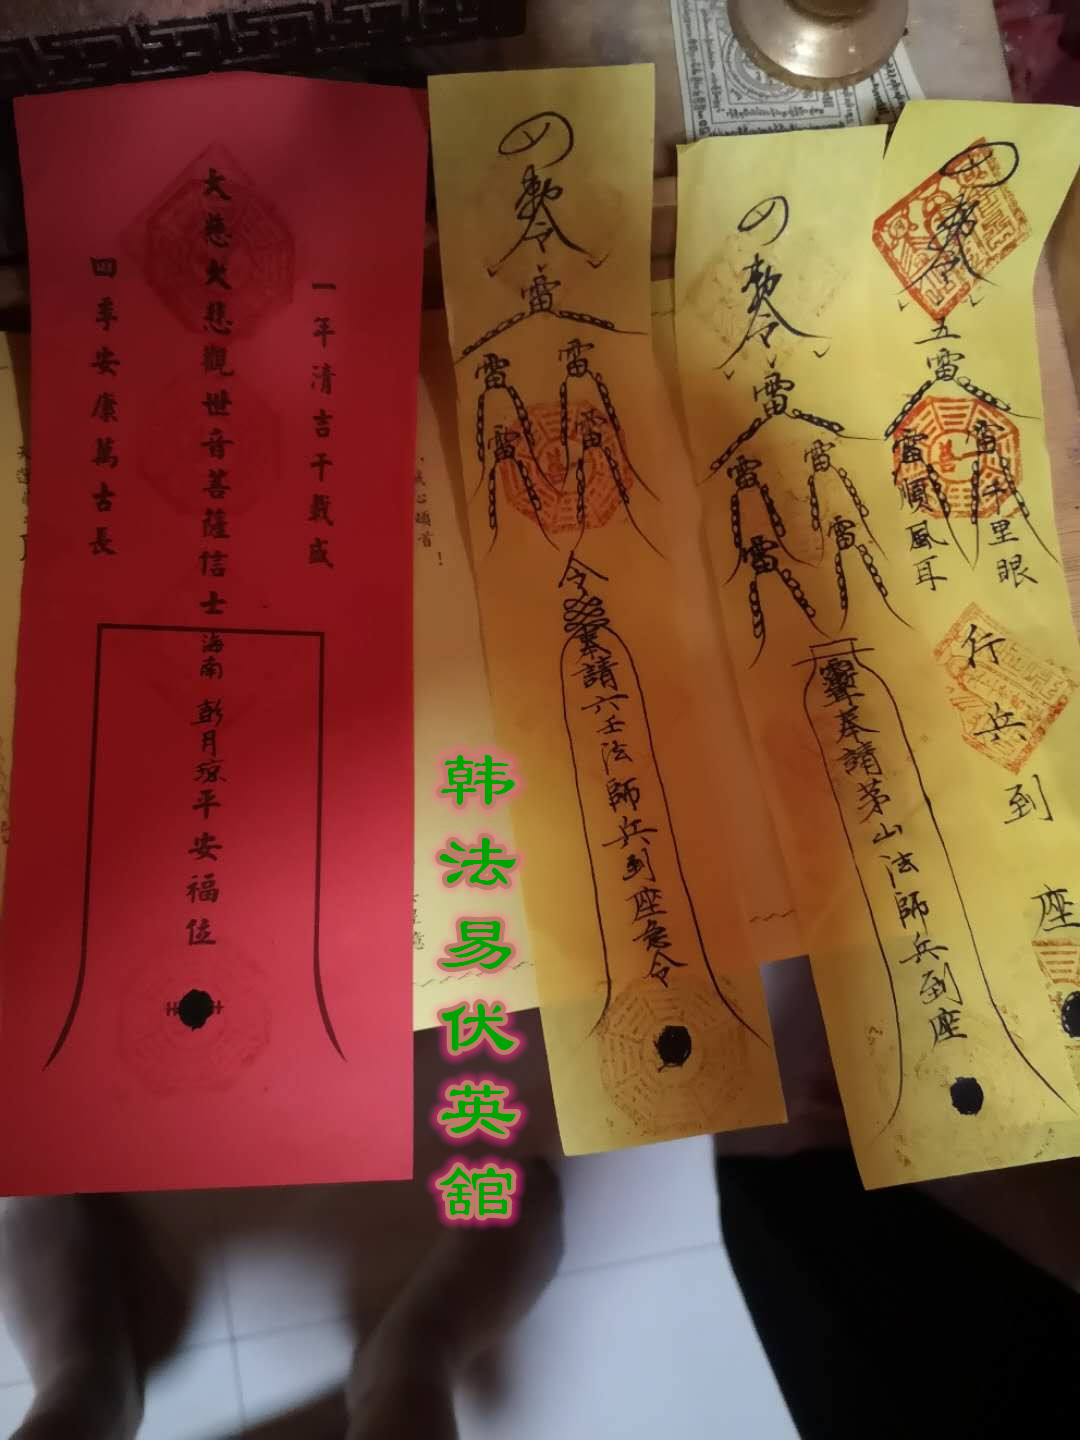 四季安康萬古長
大慈大悲觀世音菩薩信士海南彭月琼平安福位
一年清吉千載盛
敕令
雷
雷 雷
雷 雷
令
奉請六壬法師兵到座急令
敕令
雷
雷 雷
雷 雷
奉請茅山法師兵到座
敕令
五雷
雷 雷
順風耳
千里眼
行兵到座
誠心頓首！
善
善
韩法易伏英舘